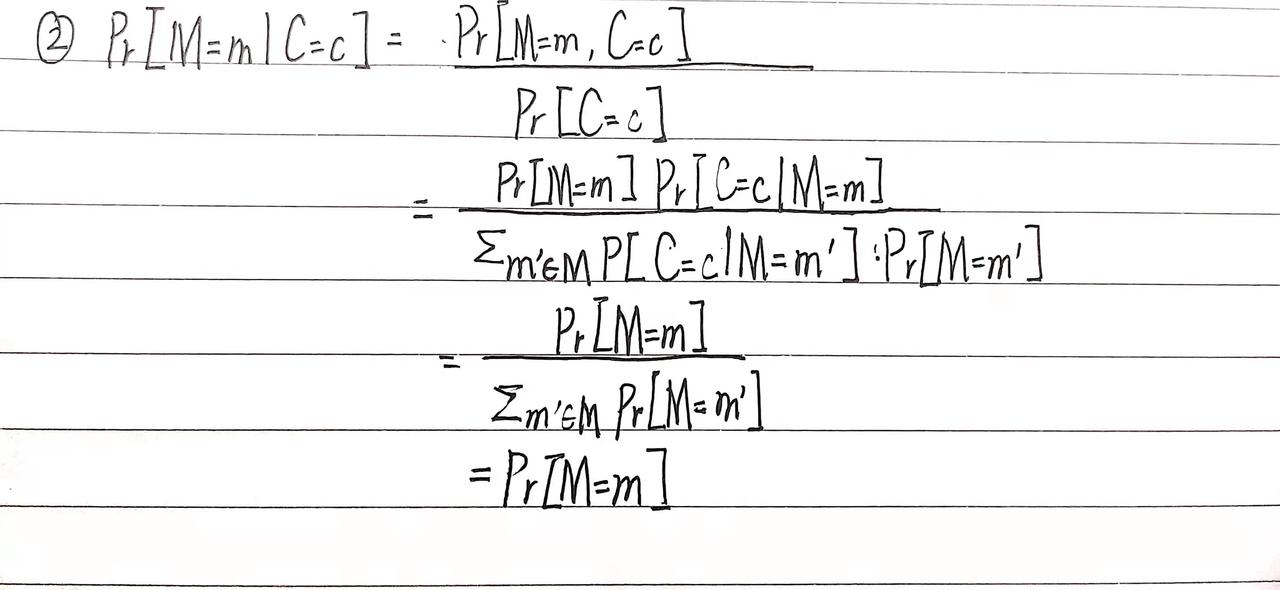 ② Pr[M=m|C=c] = Pr[M=m, C=c]
Pr[C=c]
= Pr[M=m] Pr[C=c|M=m]
Σm'∈M P[C=c|M=m']·Pr[M=m']
= Pr[M=m]
Σm'∈M Pr[M=m']
= Pr[M=m]